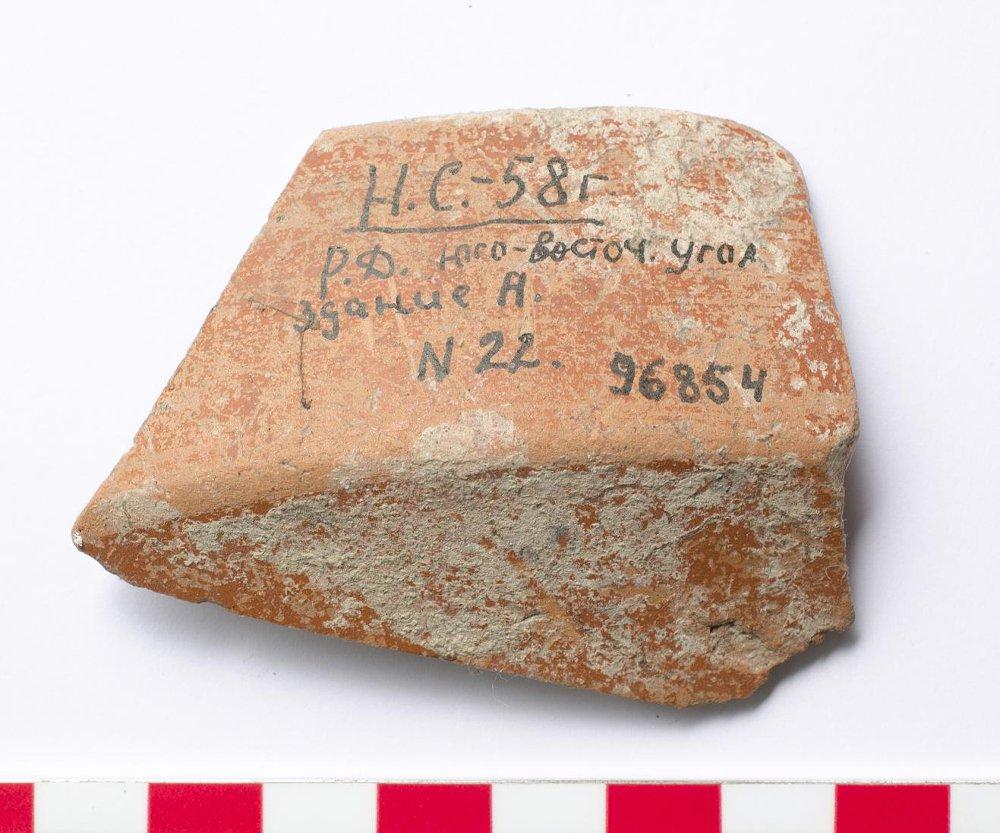 Н.С.-58г
Р.Д. юго-восточ. угол
здание А.
N 22. 96854